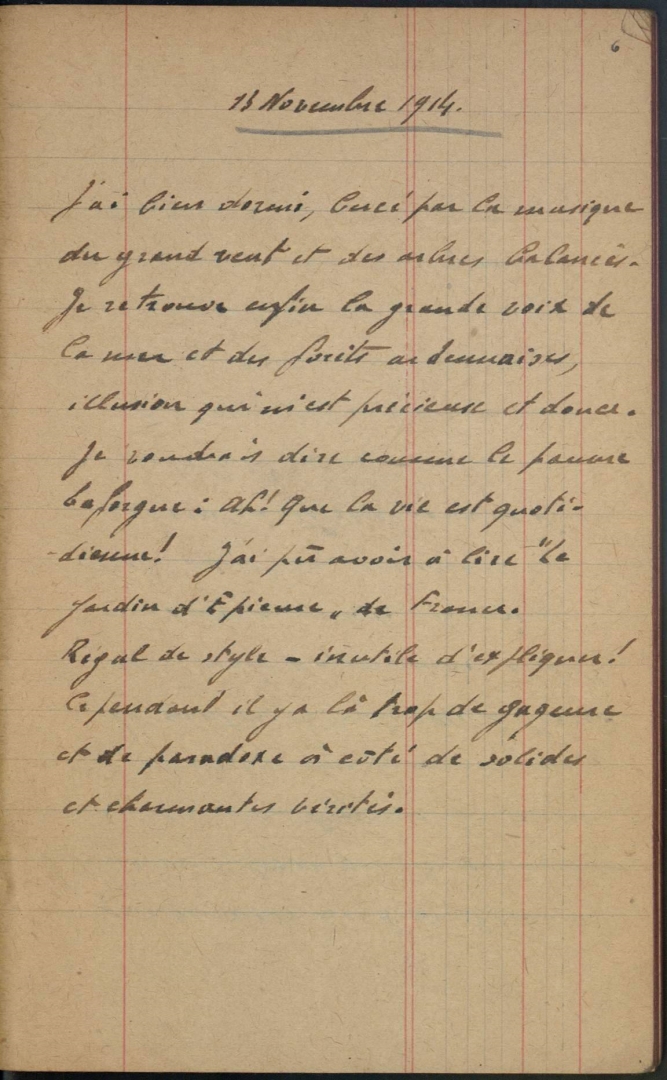 6
13 Novembre 1914.
J'ai bien dormi, bercé par la musique
du grand vent et des arbres balancés.
Je retrouve enfin la grande voix de
la mer et des forêts ardennaises,
illusion qui m'est précieuse et douce.
Je voudrais dire comme le pauvre
Laforgue : Ah! Que la vie est quoti-
-dienne! J'ai pû avoir à lire "le
Jardin d'Epicure" de France.
Régal de style - inutile d'expliquer!
Cependant il y a là trop de gageure
et de paradoxe à côté de solides
et charmantes vérités.